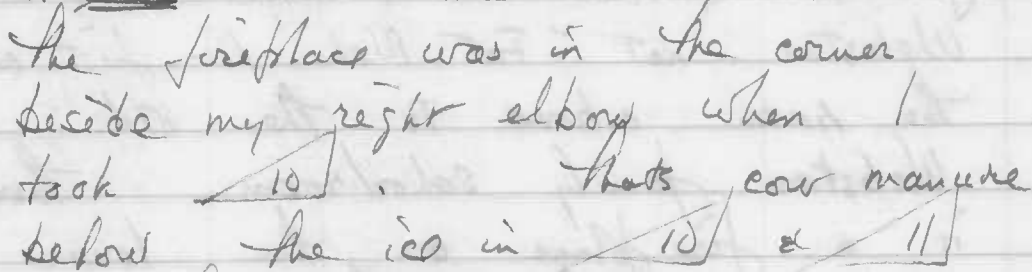 the fireplace was in the corner
beside my right elbow when I
took 10. Thats cow manure
below the ice in 10 & 11